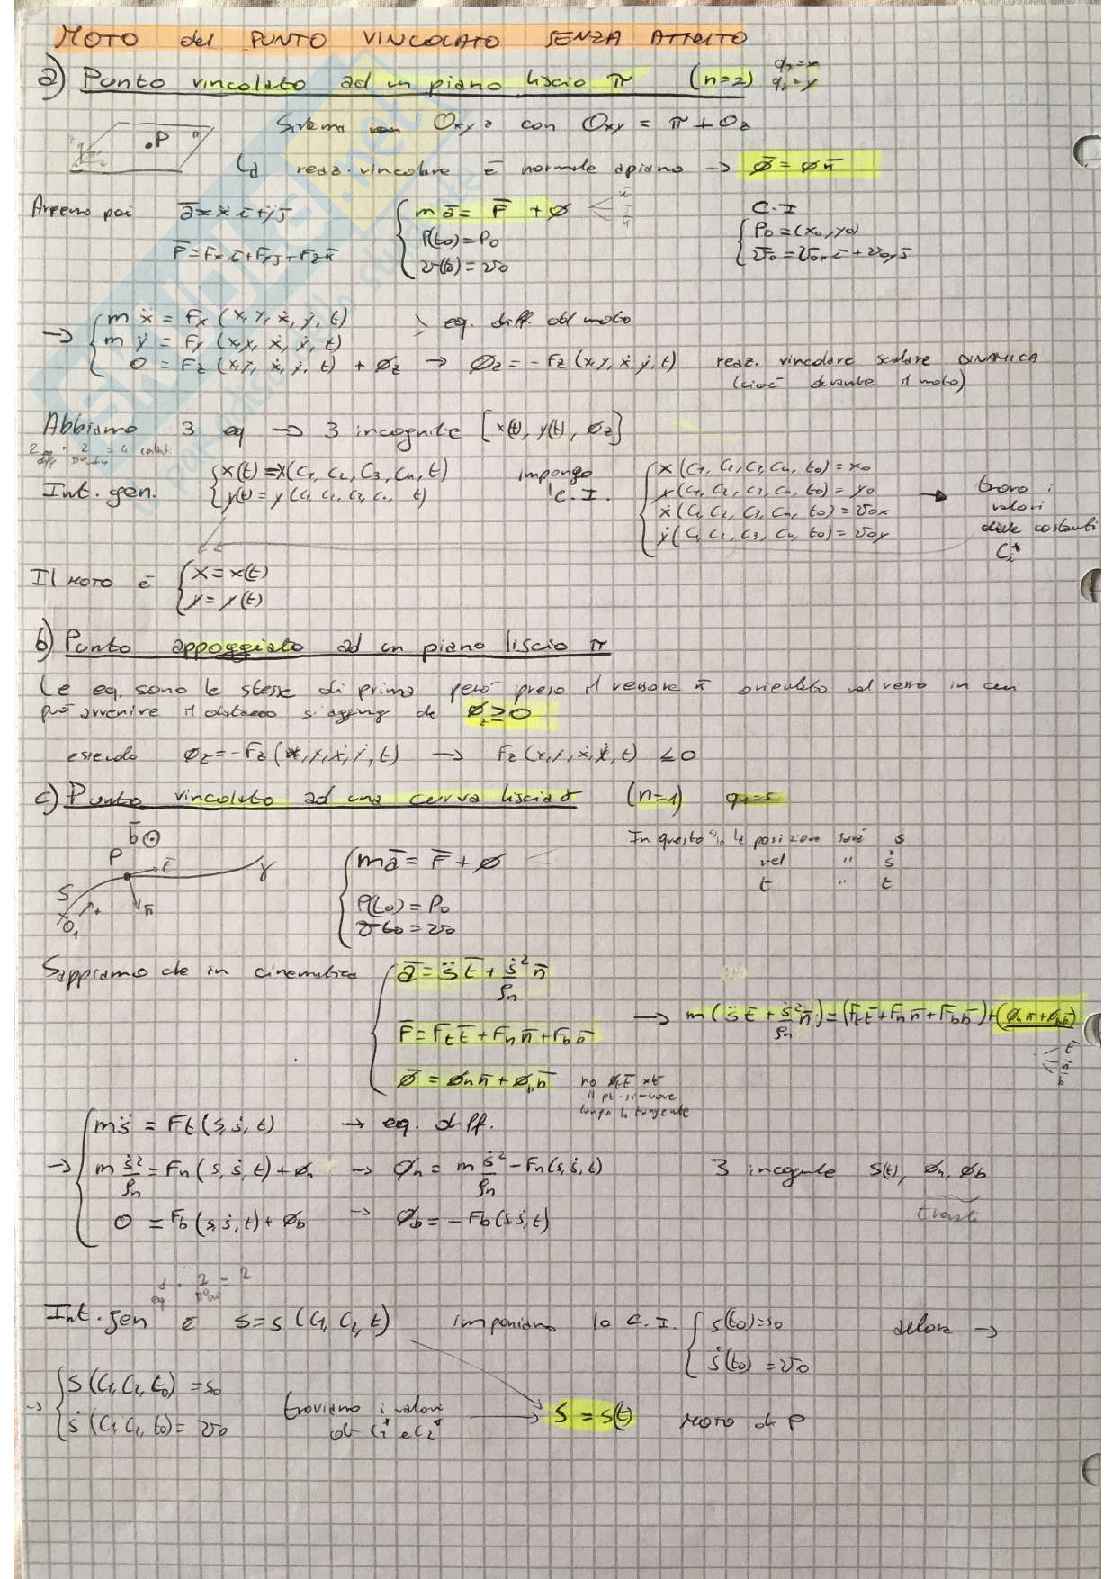 MOTO del PUNTO VINCOLATO SENZA ATTRITO
a) Punto vincolato ad un piano liscio π (n=2) q₁=x
q₂=y
Sistema Oxyz con Oxy = π + Oz
•P "π"
reaz. vincolare è normale a piano → Φ̄ = Φn̄
Avremo poi ā=ẍ ī+ÿ j̄
{ m ā = F̄ + Φ
C.I
P(t₀)=P₀
P₀=(x₀,y₀)
F̄=Fx ī+Fy j̄+Fz k̄
v(t₀)=v₀
v̄₀=v₀x ī+v₀y j̄
→ { m ẍ = Fx (x,y,ẋ,ẏ,t)
m ÿ = Fy (x,y,ẋ,ẏ,t) } eq. diff. del moto
0 = Fz (x,y,ẋ,ẏ,t) + Φz → Φz = -Fz (x,y,ẋ,ẏ,t) reaz. vincolare scalare DINAMICA
(cioè durante il moto)
Abbiamo 3 eq → 3 incognite [x(t), y(t), Φz]
Int. gen. { x(t)=x(C₁, C₂, C₃, C₄, t)
y(t)=y(C₁ C₂ C₃ C₄ t)
impongo C.I.
{ x(C₁, C₂, C₃, C₄, t₀)=x₀
y(C₁, C₂, C₃, C₄, t₀)=y₀
ẋ(C₁, C₂, C₃, C₄, t₀)=v₀x
ẏ(C₁, C₂, C₃, C₄, t₀)=v₀y
→ trovo i
valori
delle costanti
Ci*
Il MOTO è { x=x(t)
y=y(t)
b) Punto appoggiato ad un piano liscio π
Le eq. sono le stesse di prima però preso il versore n̄ orientato nel verso in cui
può avvenire il distacco si aggiunge che Φz≥0
essendo Φz=-Fz(x,y,ẋ,ẏ,t) → Fz(x,y,ẋ,ẏ,t) ≤0
c) Punto vincolato ad una curva liscia γ (n=1) q₁=s
b̄⊙
P t̄ γ
S n̄
O₁ +
{ mā = F̄ + Φ
P(t₀)=P₀
v(t₀)=v₀
In questo la posizione sarà s
vel " ṡ
t " t
Sappiamo che in cinematica { ā = s̈ t̄ + ṡ²/ρn n̄
F̄=Ft t̄+Fn n̄+Fb b̄
Φ̄ = Φn n̄+Φb b̄
→ m(s̈ t̄ + ṡ²/ρn n̄)=(Ft t̄+Fn n̄+Fb b̄)+(Φn n̄+Φb b̄)
no Φt t̄
il pt si muove
lungo la tangente
→ { ms̈ = Ft(s,ṡ,t) → eq. diff.
m ṡ²/ρn = Fn(s,ṡ,t)+Φn → Φn = m ṡ²/ρn - Fn(s,ṡ,t)
0 = Fb(s,ṡ,t)+Φb → Φb = -Fb(s,ṡ,t)
3 incognite s(t), Φn, Φb
1 · 2 = 2
Int. gen è s=s(C₁, C₂, t) imponiamo le C.I. { s(t₀)=s₀
ṡ(t₀)=v₀
allora →
→ { s(C₁, C₂, t₀)=s₀
ṡ(C₁, C₂, t₀)=v₀
troviamo i valori
di C₁* e C₂*
→ s=s(t) MOTO di P